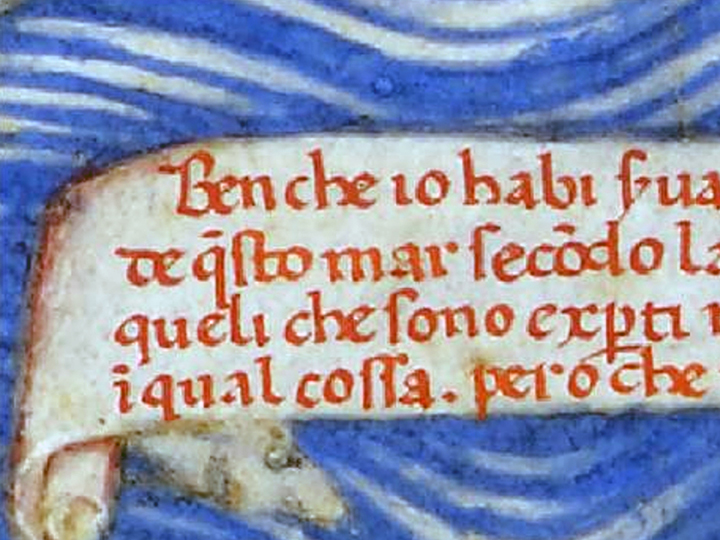 Ben che io habi
de q̄sto mar secōdo
queli che sono exp̱ti
i qual cossa. pero che